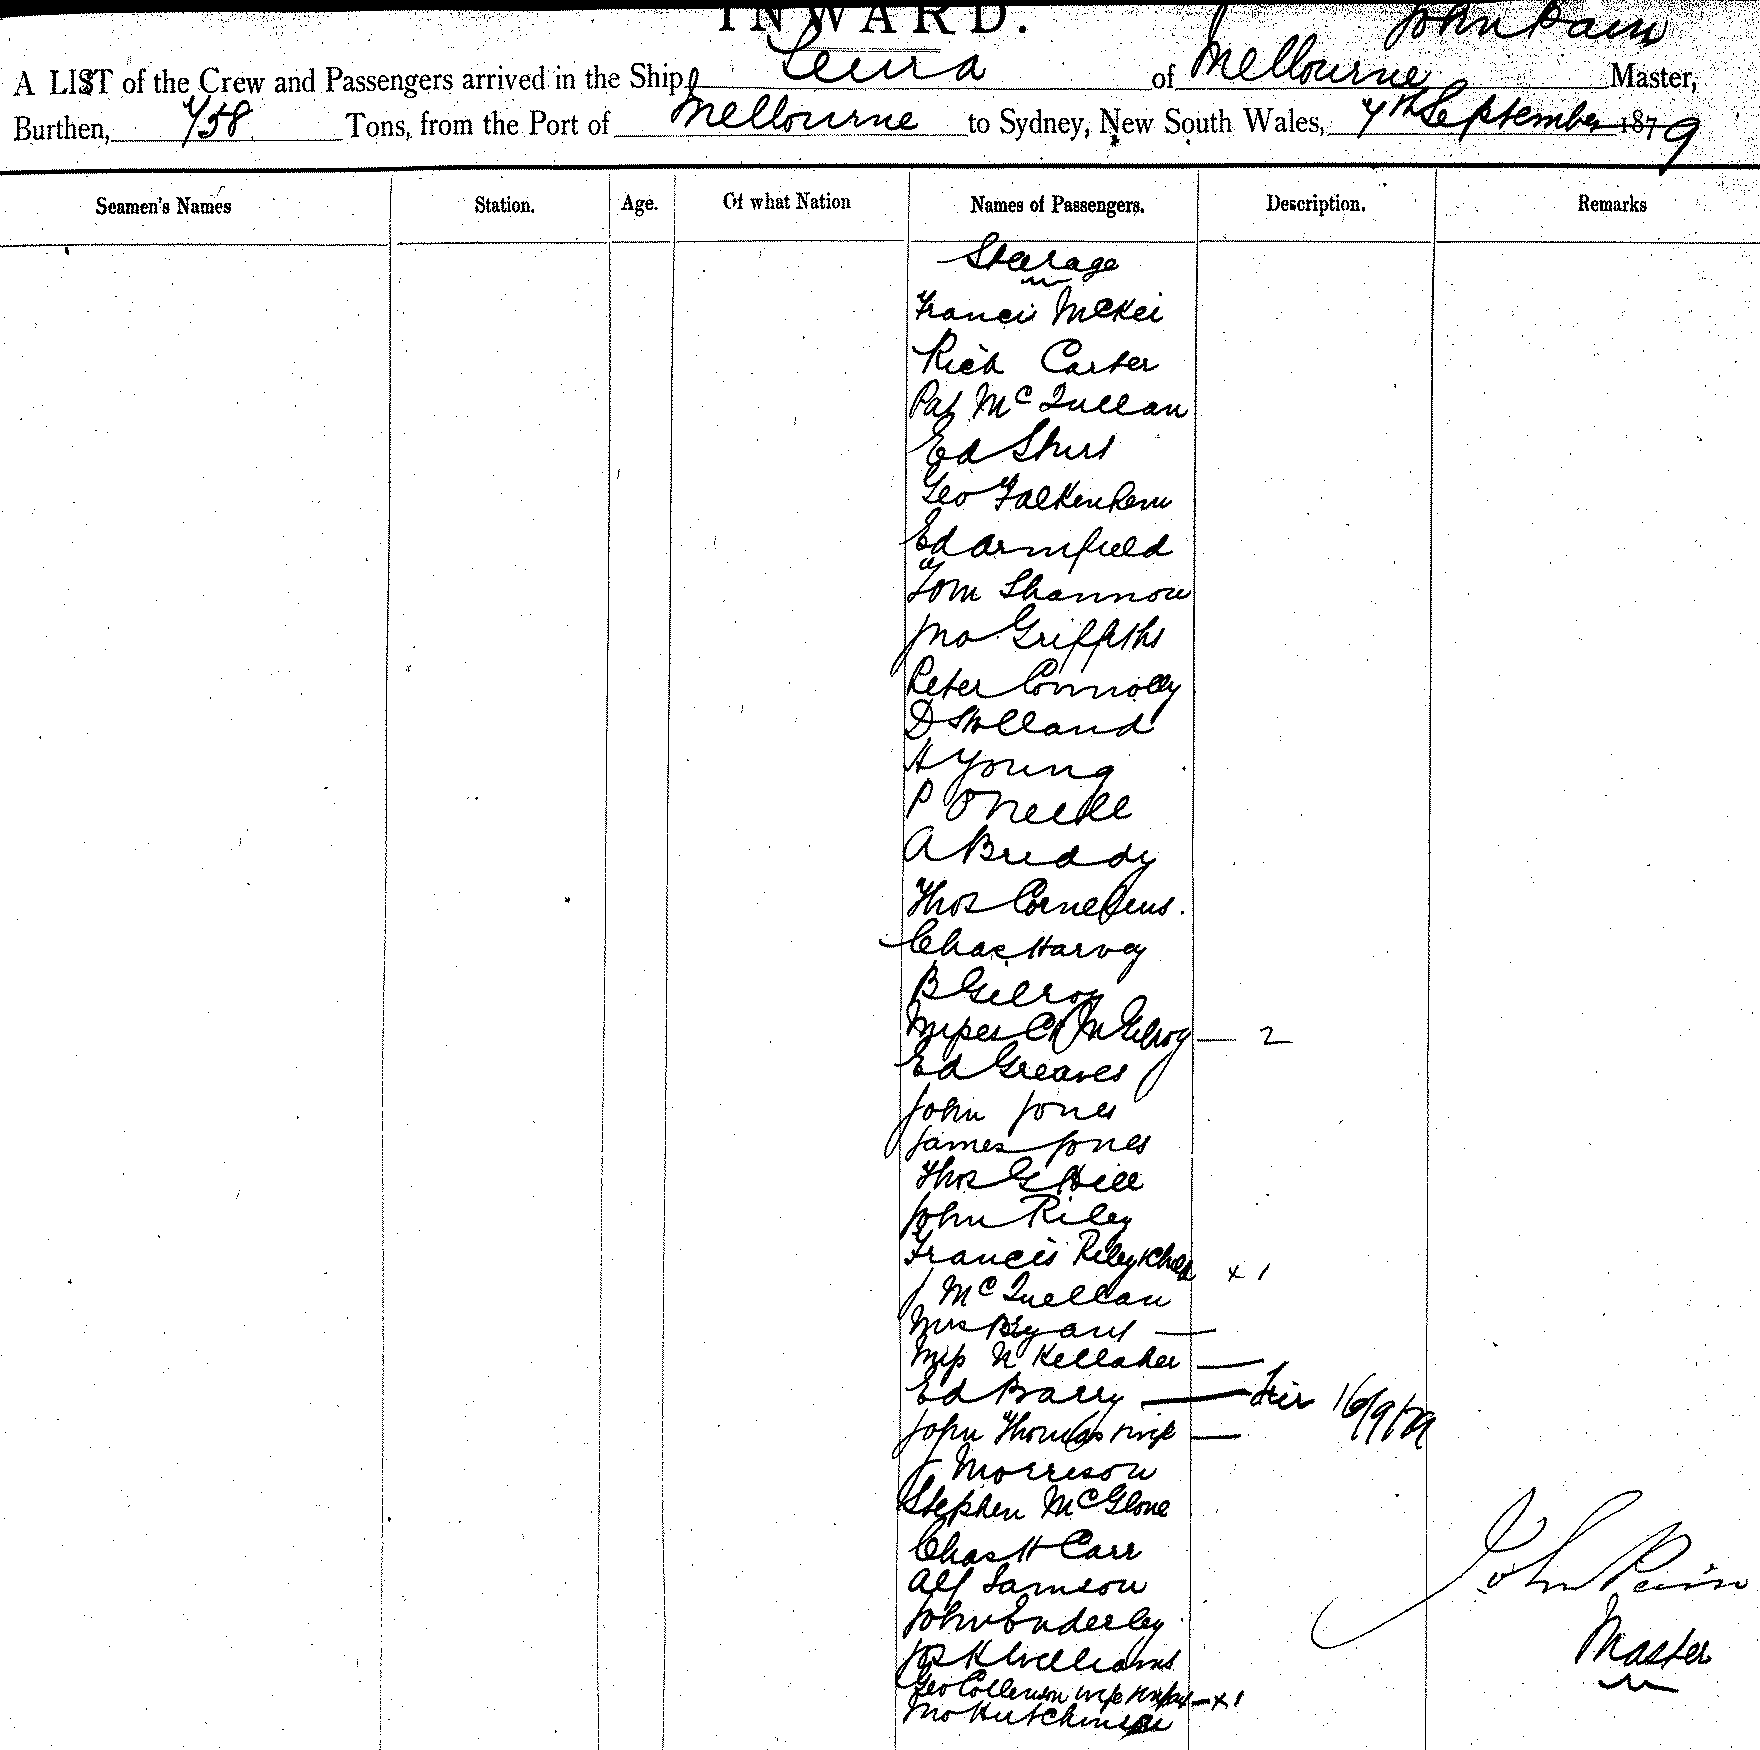 INWARD.
John Pain
A LIST of the Crew and Passengers arrived in the Ship of Melbourne Master,
Burthen, 758 Tons, from the Port of Melbourne to Sydney, New South Wales, 7th September 1879
Seamen's Names Station. Age. Of what Nation Names of Passengers. Description. Remarks
Steerage
Francis McKei
Rich Carter
Pat McQuellan
Ed
Geo Falkenhem
Ed Armfield
Tom Shannon
Jno Griffiths
Peter Connolly
D Holland
H Young
P O'Neill
A Briddy
Thos Cornelius.
Chas Harvey
B Gilroy
Misses C & M Gilroy — 2
Ed Greaves
John Jones
James Jones
Thos G Hill
John Riley
Francis Riley & Child x 1
J McQuellan
Mrs Bryant —
Miss N Kellaher —
Ed Barry — 16/9/79
John Thomas & wife —
J Morrison
Stephen McGlone
Chas H Carr
Alf Samson
John Enderley
Jos K Williams
Geo Collinson wife & infant — x 1
Jno Hutchinson
John Pain
Master